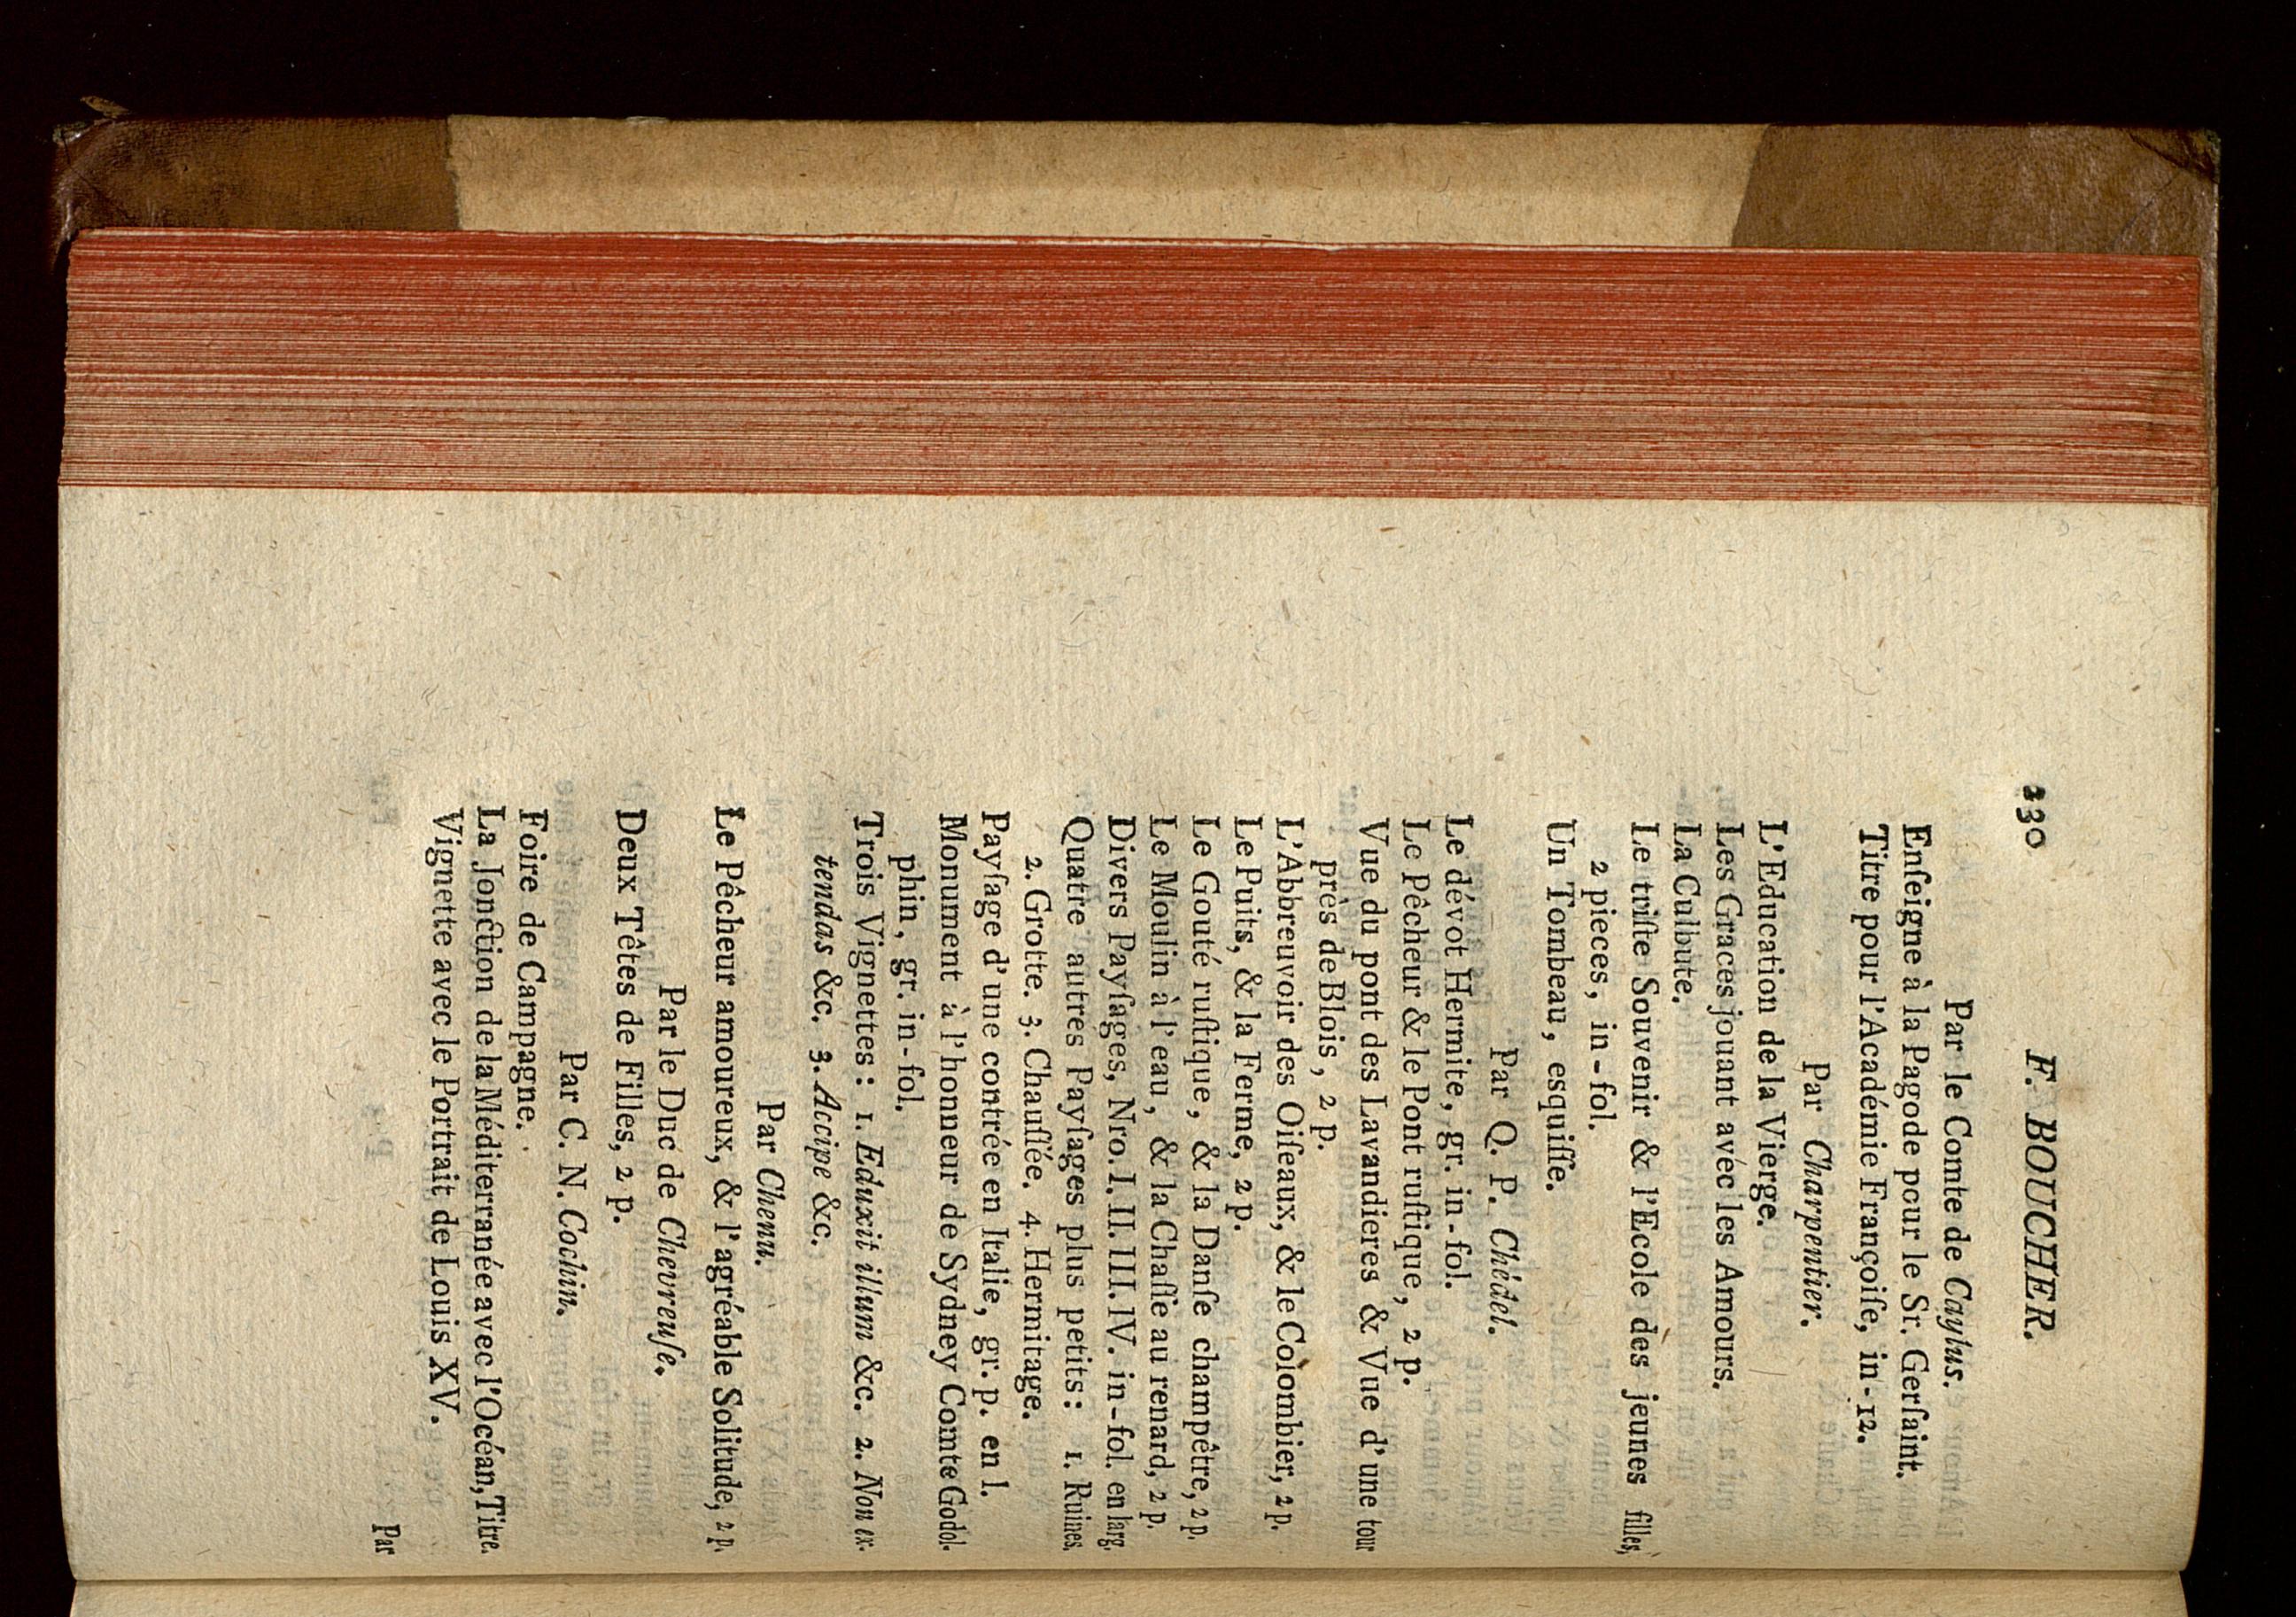 230 F. BOUCHER.
Par le Comte de Caylus.
Enſeigne à la Pagode pour le Sr. Gerſaint.
Titre pour l'Académie Françoiſe, in-12.
Par Charpentier.
L'Education de la Vierge.
Les Graces jouant avec les Amours.
La Culbute.
Le triſte Souvenir & l'Ecole des jeunes filles,
2 pieces, in-fol.
Un Tombeau, esquiſſe.
Par Q. P. Chédel.
Le dévot Hermite, gr. in-fol.
Le Pêcheur & le Pont ruſtique, 2 p.
Vue du pont des Lavandieres & Vue d'une tour
près de Blois, 2 p.
L'Abbreuvoir des Oiſeaux, & le Colombier, 2 p.
Le Puits, & la Ferme, 2 p.
Le Gouté ruſtique, & la Danſe champêtre, 2 p.
Le Moulin à l'eau, & la Chaſſe au renard, 2 p.
Divers Payſages, Nro. I. II. III. IV. in-fol. en larg.
Quatre autres Payſages plus petits: 1. Ruines.
2. Grotte. 3. Chauſſée. 4. Hermitage.
Payſage d'une contrée en Italie, gr. p. en l.
Monument à l'honneur de Sydney Comte Godol-
phin, gr. in-fol.
Trois Vignettes: 1. Eduxit illum &c. 2. Non ex-
tendas &c. 3. Accipe &c.
Par Chenu.
Le Pêcheur amoureux, & l'agréable Solitude, 2 p.
Par le Duc de Chevreuſe.
Deux Têtes de Filles, 2 p.
Par C. N. Cochin.
Foire de Campagne.
La Jonction de la Méditerranée avec l'Océan, Titre.
Vignette avec le Portrait de Louis XV.
Par